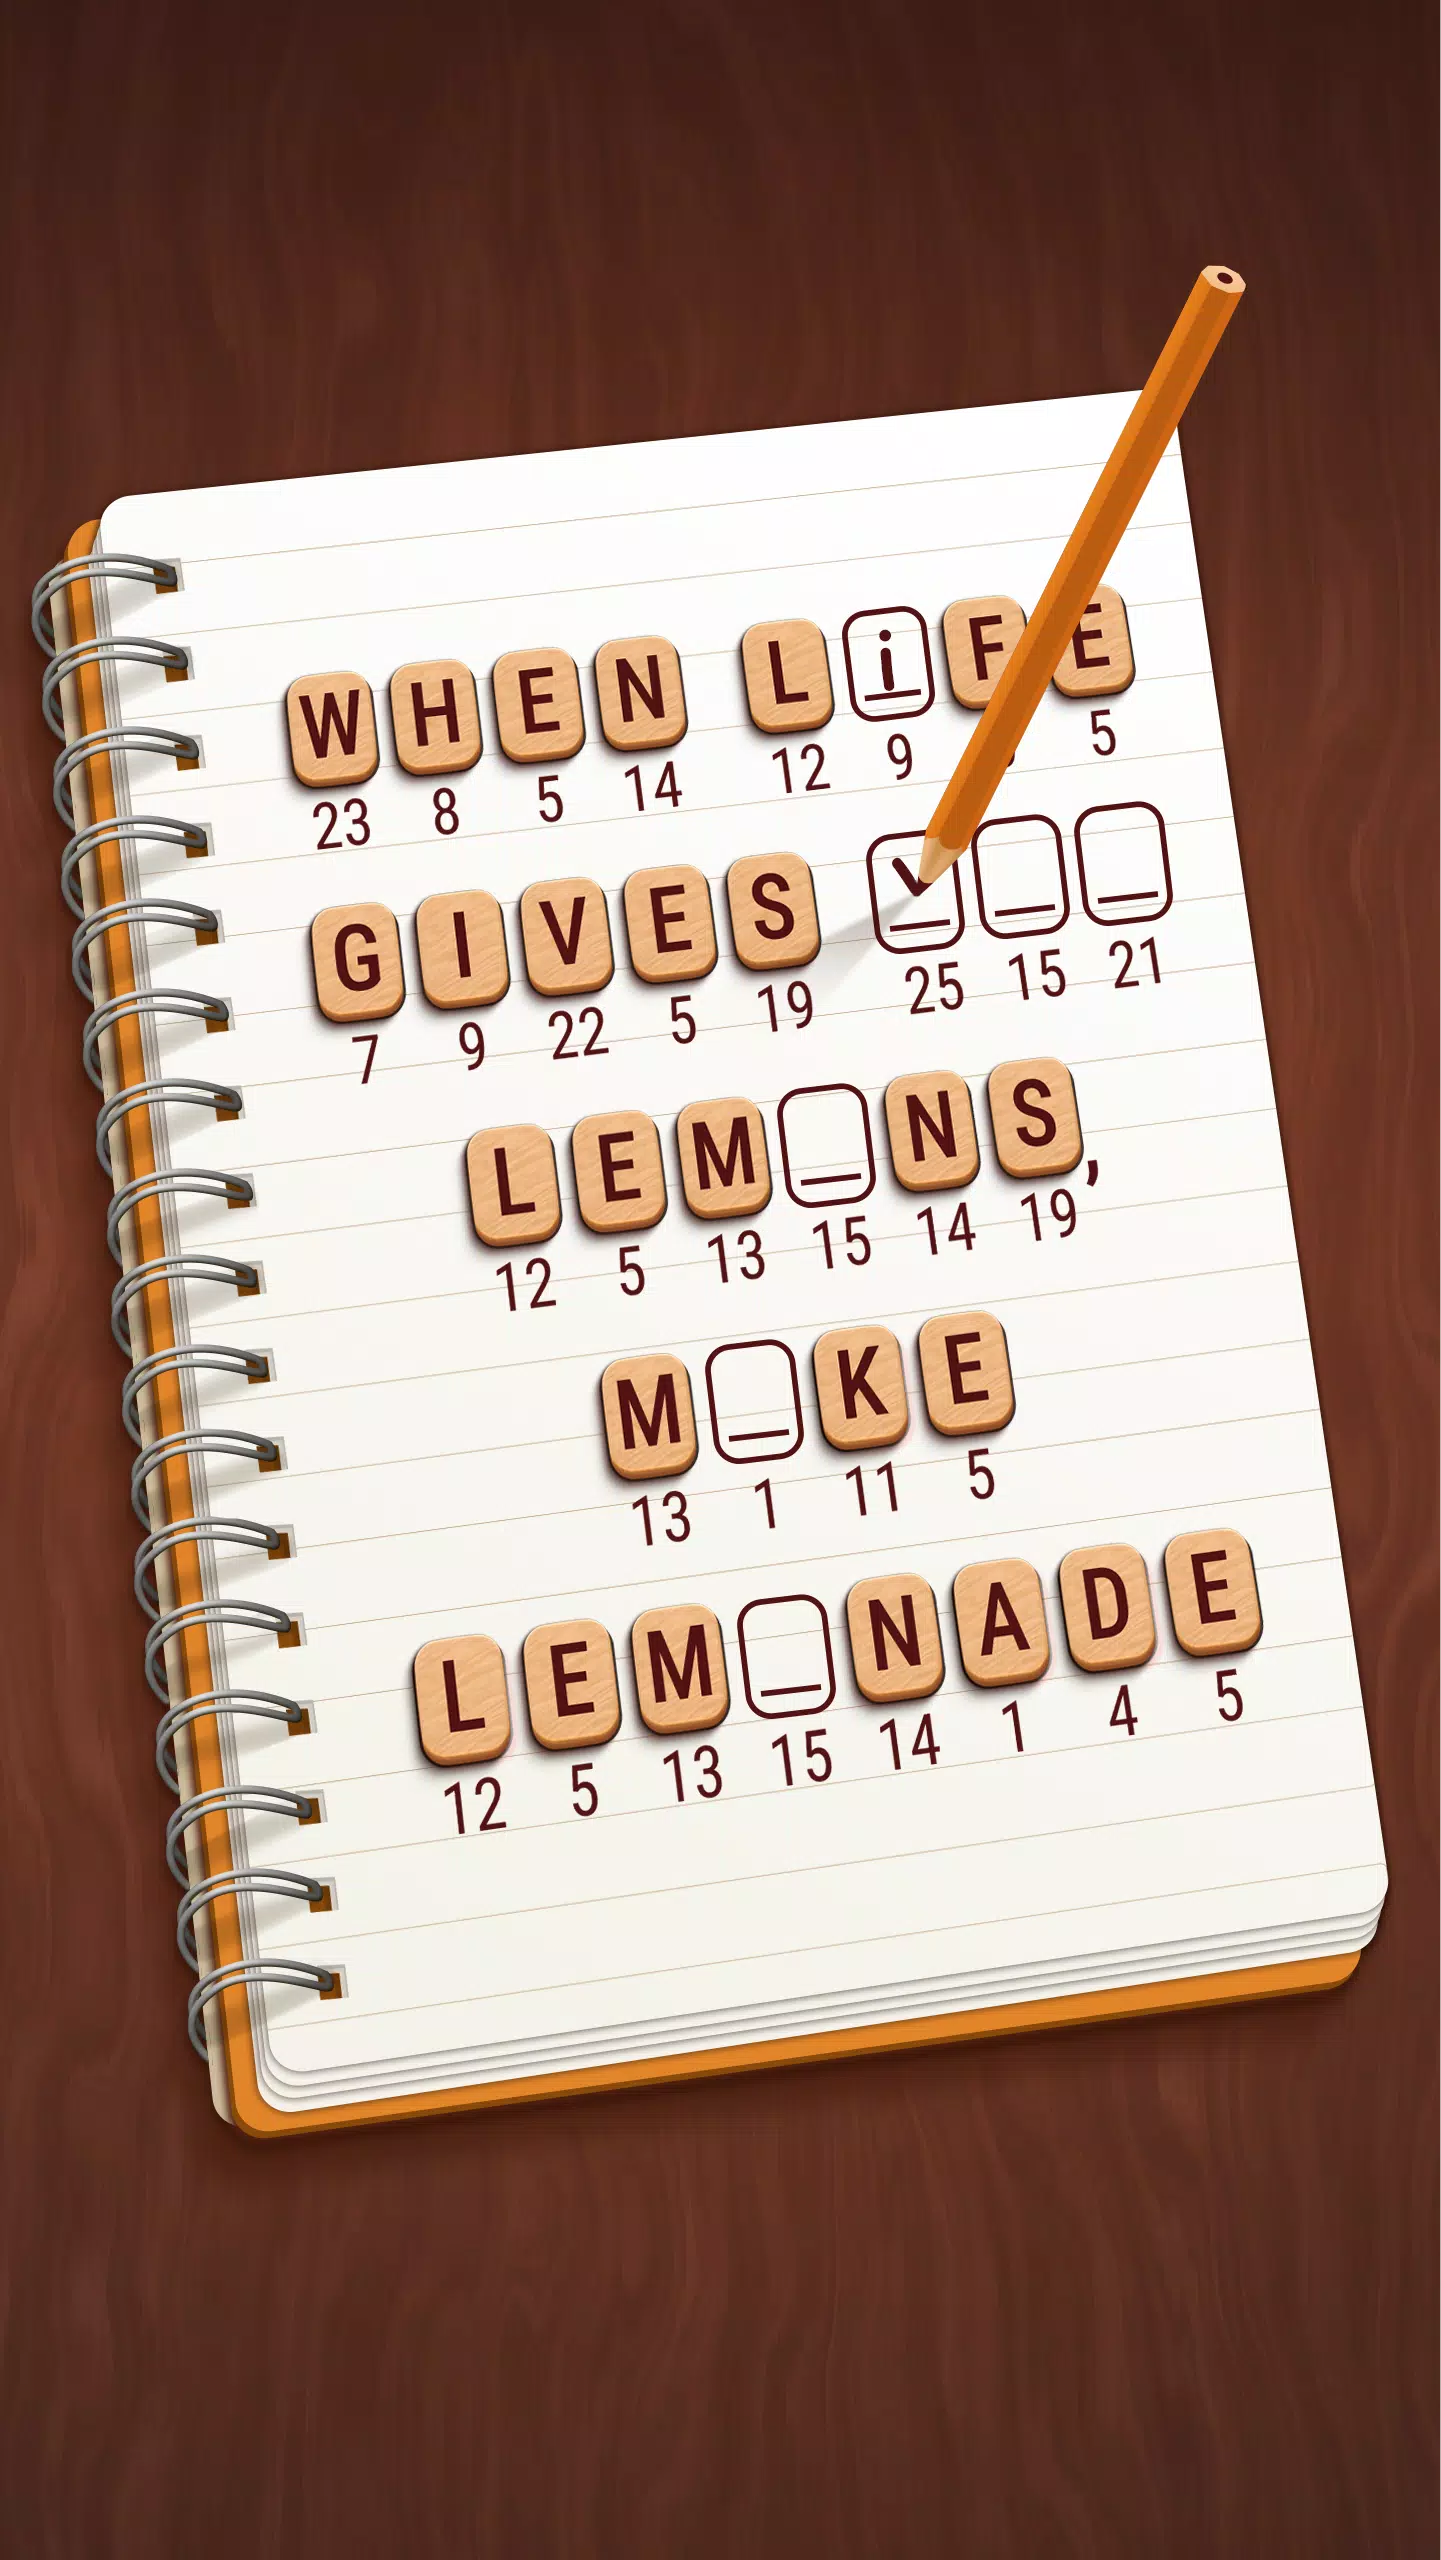 WHEN LiFE
23 8 5 14 12 9 5
GIVES
7 9 22 5 19 25 15 21
LEM_NS,
12 5 13 15 14 19
M_KE
13 1 11 5
LEM_NADE
12 5 13 15 14 1 4 5